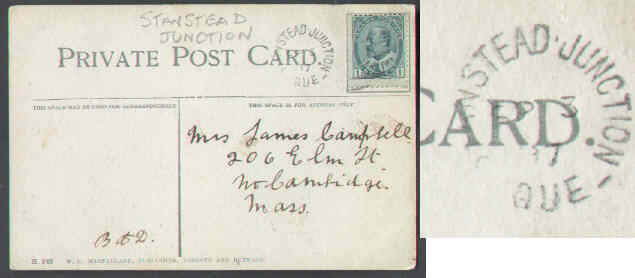 STANSTEAD
JUNCTION
PRIVATE POST CARD.
NSTEAD · JUNCTION -
QUE
THIS SPACE MAY BE USED FOR CORRESPONDENCE
THIS SPACE IS FOR ADDRESS ONLY
Mrs James Campbell
206 Elm St
No Cambridge
Mass.
B & D.
NSTEAD · JUNCTION -
CARD.
QUE